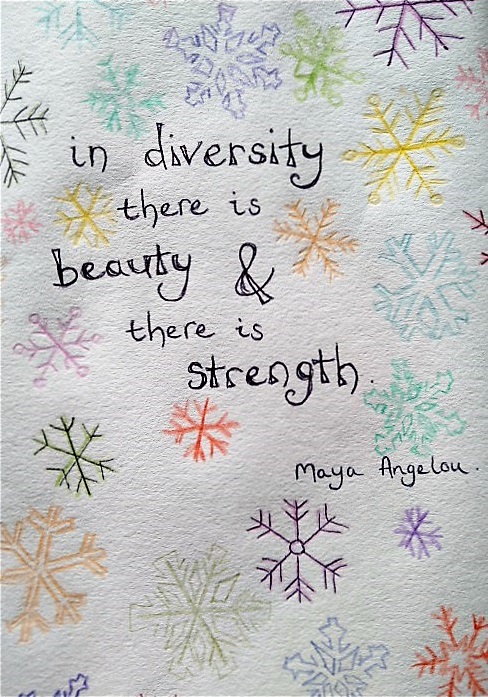 in diversity
there is
beauty &
there is
strength.
Maya Angelou.